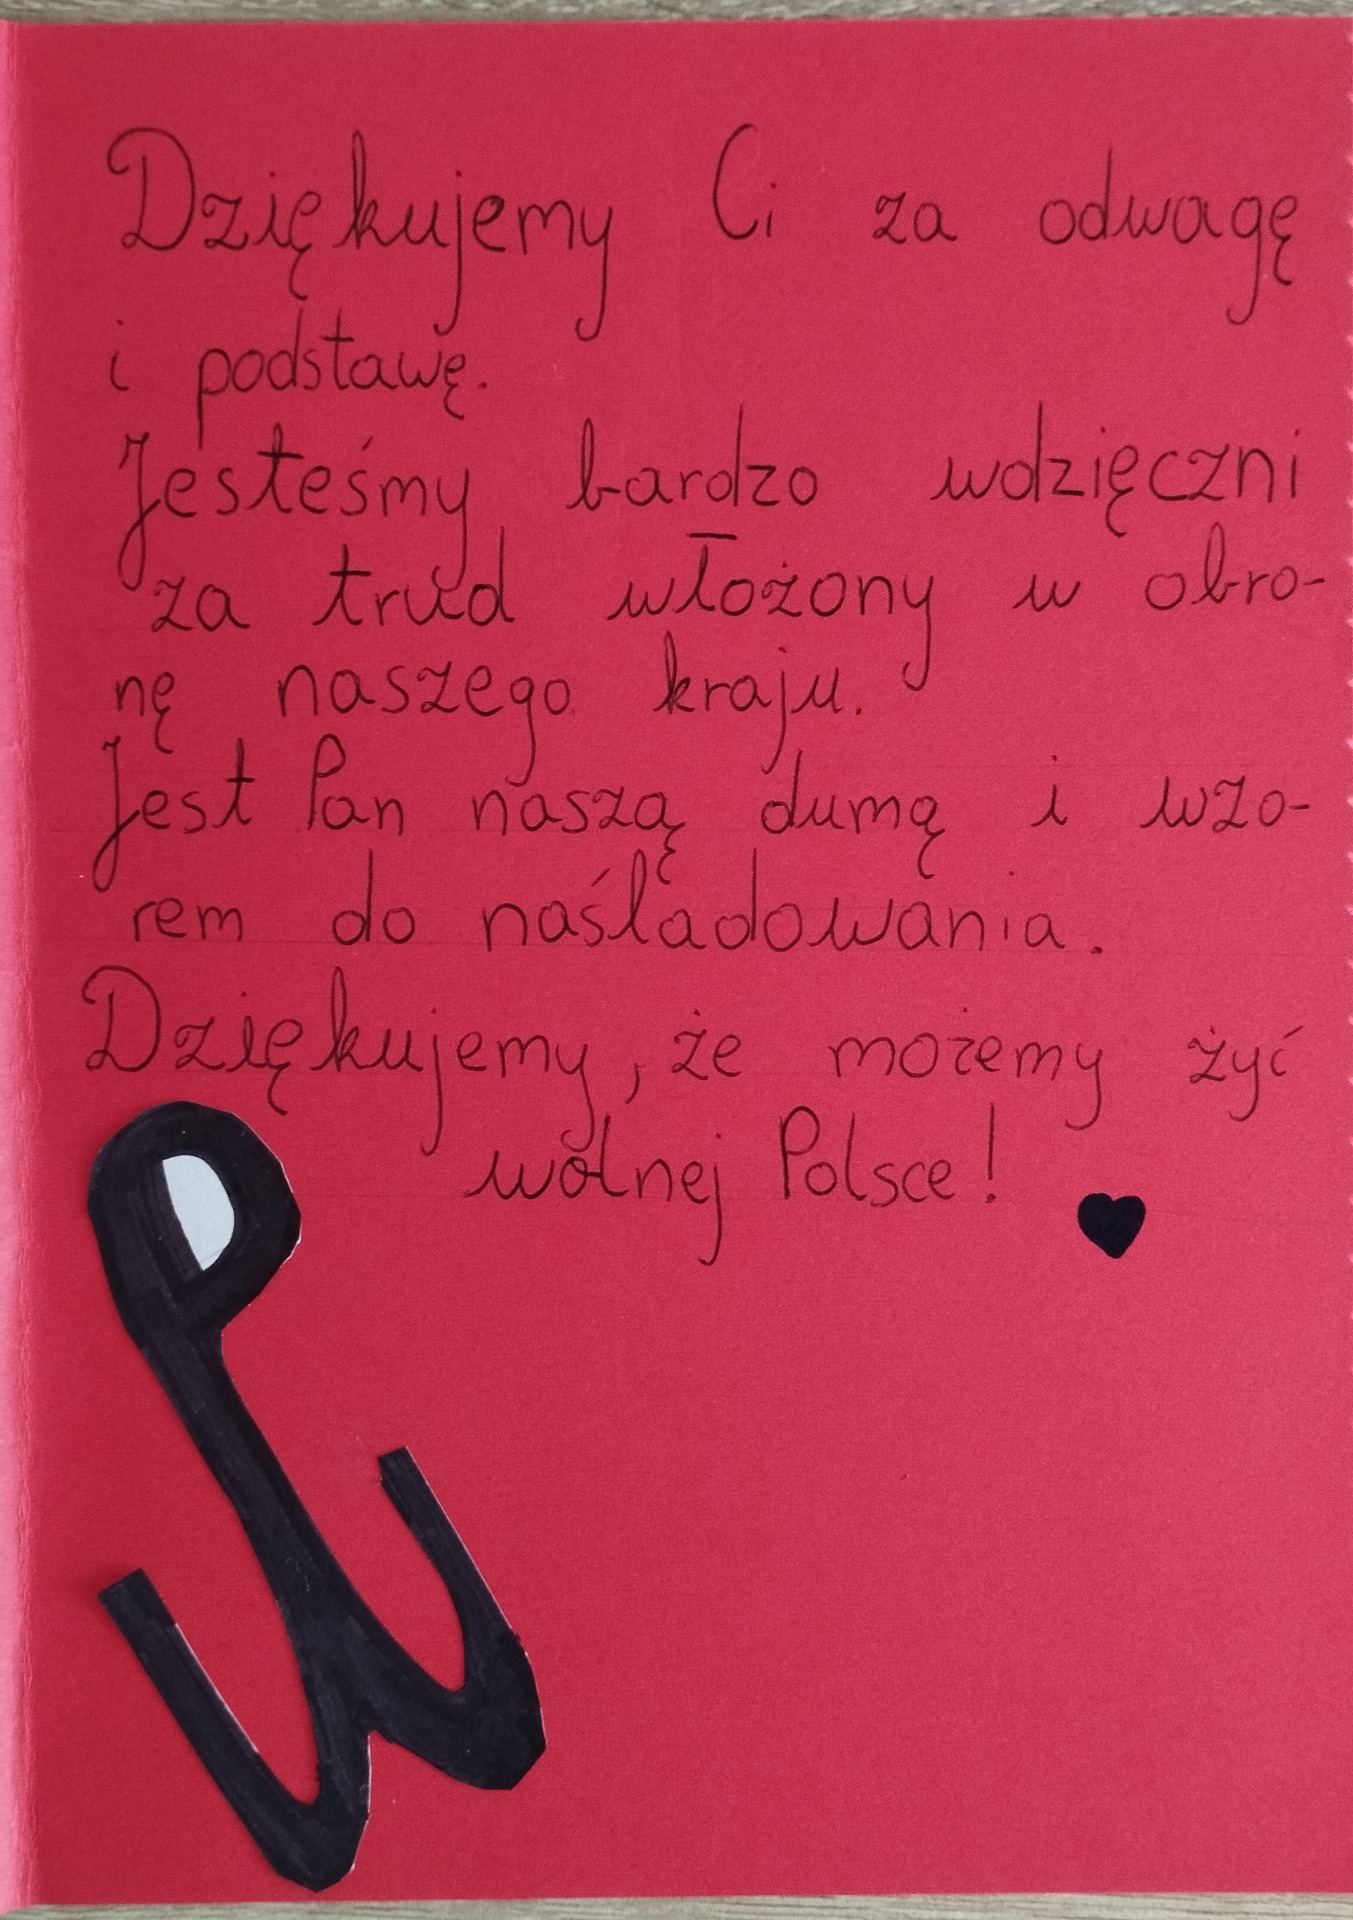 Dziękujemy Ci za odwagę
i podstawę.
Jesteśmy bardzo wdzięczni
za trud włożony w obro-
nę naszego kraju.
Jest Pan naszą dumą i wzo-
rem do naśladowania.
Dziękujemy, że możemy żyć
wolnej Polsce!